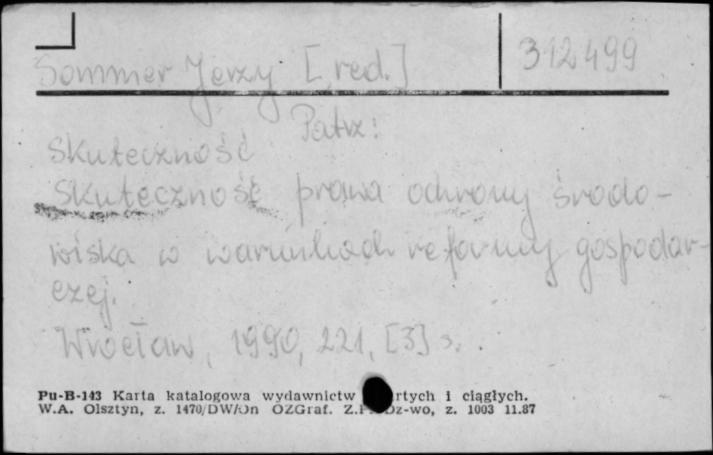 Sommer Jerzy [red.] 312499
Patrz:
Skuteczność
Skuteczność prawa ochrony środo-
wiska w warunkach reformy gospodar-
czej.
Wrocław, 1990, 221, [3] s.
Pu-B-143 Karta katalogowa wydawnictw rtych i ciągłych.
W.A. Olsztyn, z. 1470/DW/On OZGraf. Z.P. Dz-wo, z. 1003 11.87